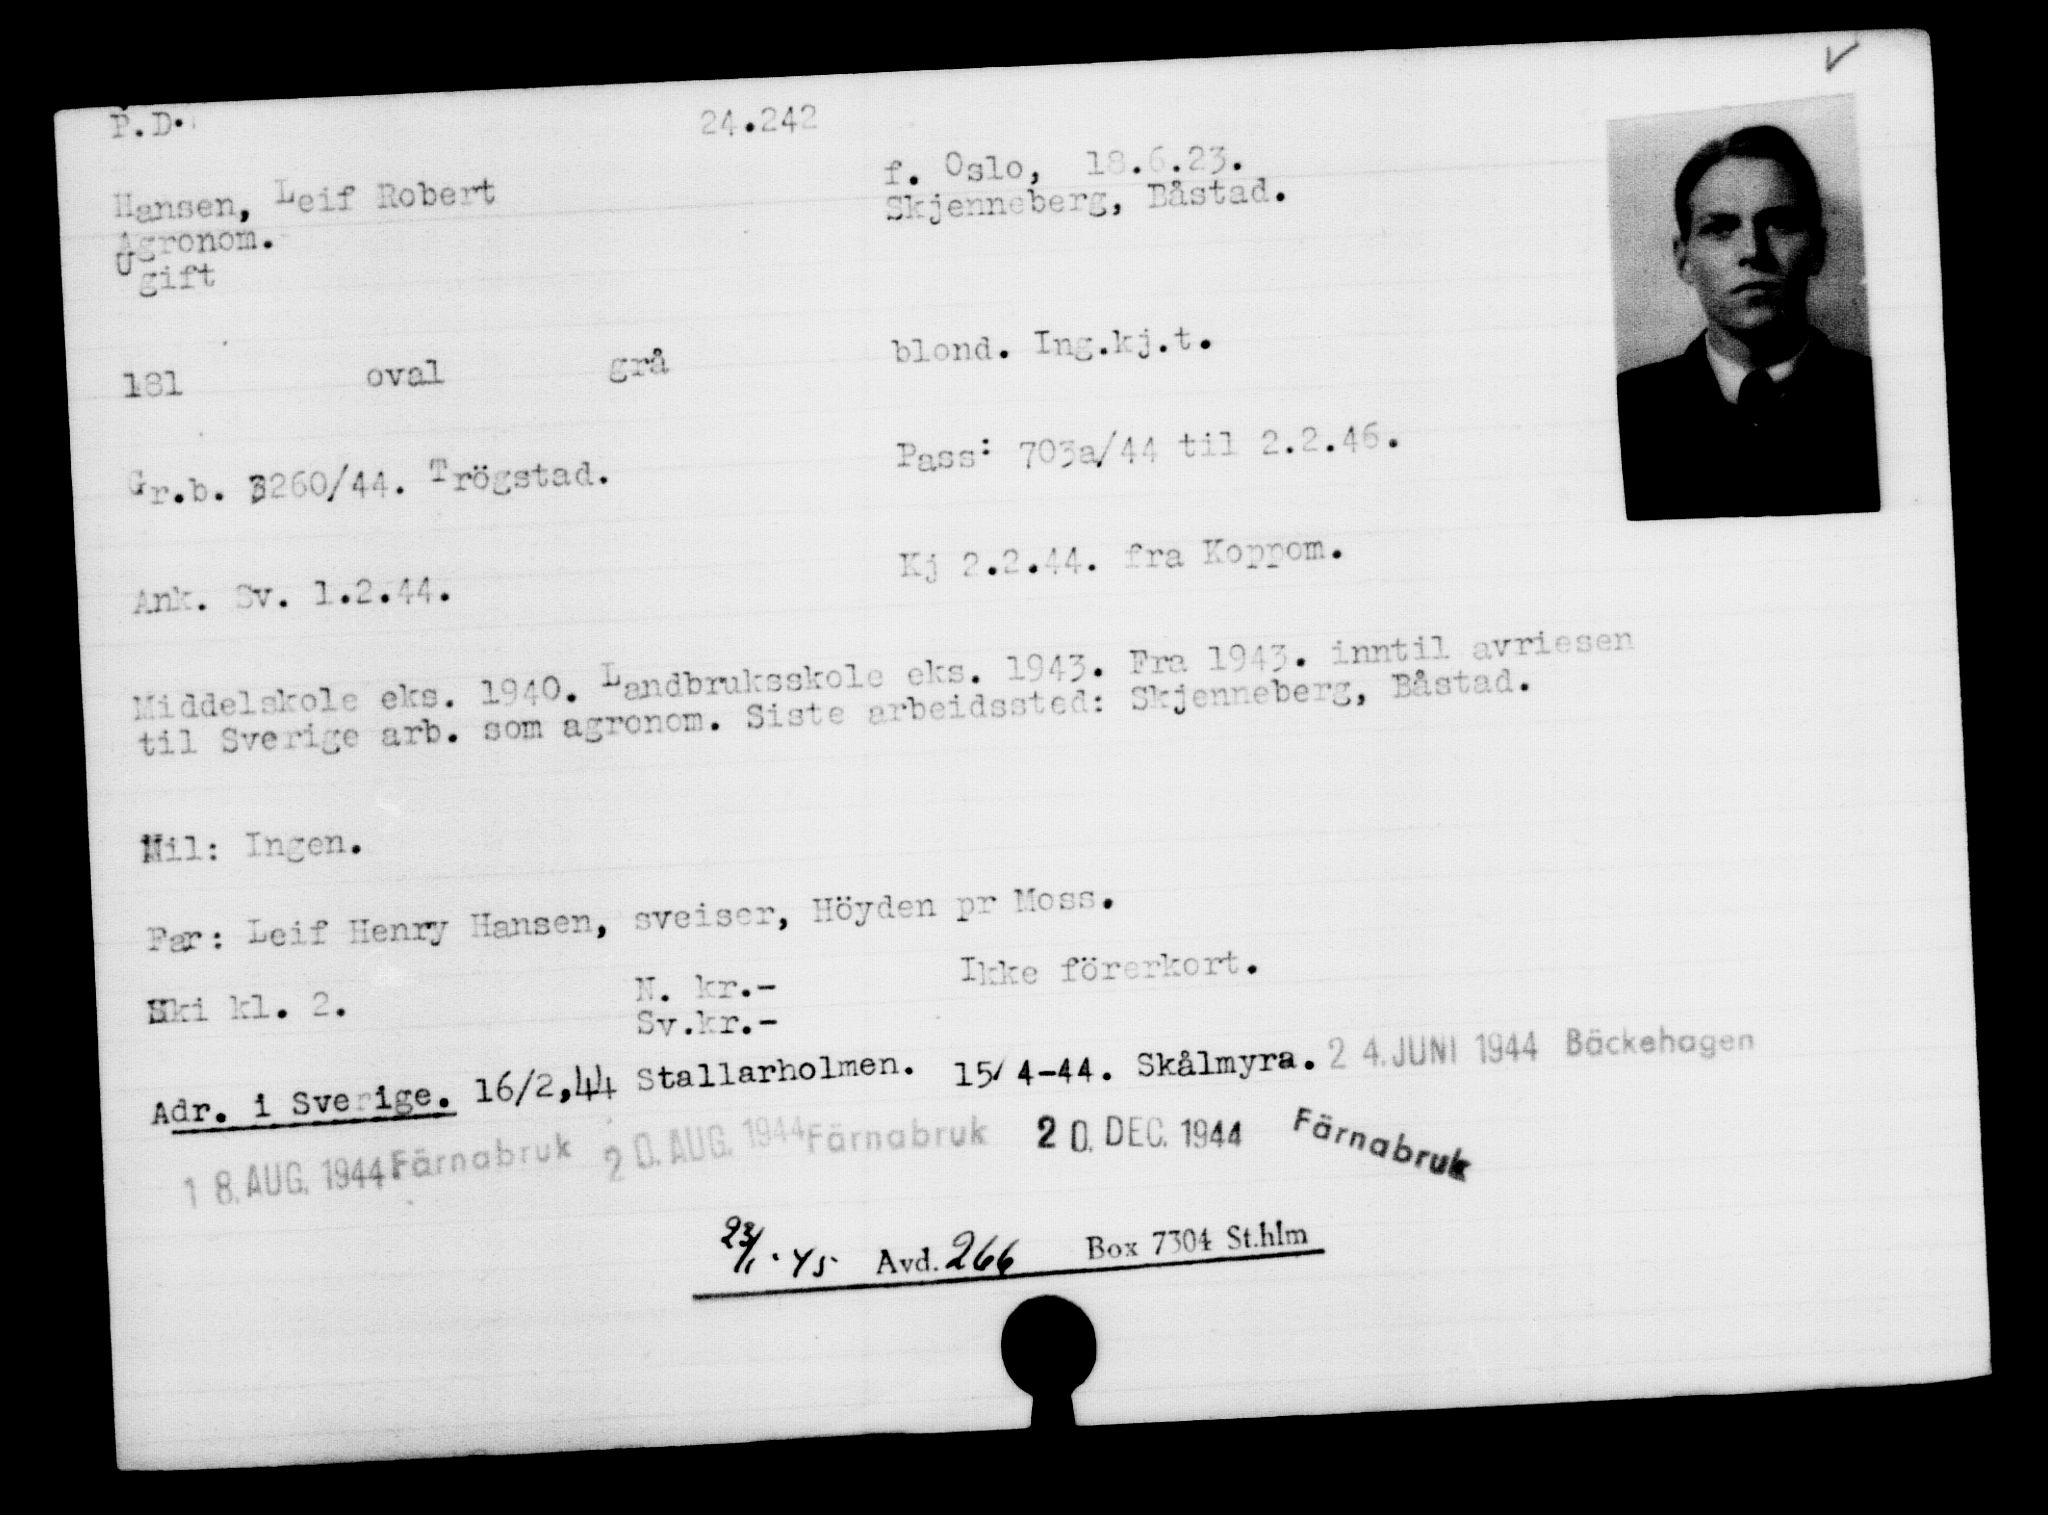 P.D.
24.242
Hansen, Leif Robert
f. Oslo, 18.6.23.
Agronom.
Skjenneberg, Båstad.
Ugift
181 oval grå blond. Ing.kj.t.
Gr.b. 3260/44. Trögstad.
Pass: 703a/44 til 2.2.46.
Ank. Sv. 1.2.44.
Kj 2.2.44. fra Koppom.
Middelskole eks. 1940. Landbruksskole eks. 1943. Fra 1943. inntil avriesen
til Sverige arb. som agronom. Siste arbeidssted: Skjenneberg, Båstad.
Mil: Ingen.
Far: Leif Henry Hansen, sveiser, Höyden pr Moss.
Ski kl. 2.
N. kr.-
Ikke förerkort.
Sv.kr.-
Adr. i Sverige. 16/2,44 Stallarholmen. 15/4-44. Skålmyra. 24. JUNI 1944 Bäckehagen
18. AUG. 1944 Färnabruk 20. AUG. 1944 Färnabruk 20. DEC. 1944 Färnabruk
23/1.45 Avd. 266 Box 7304 St.hlm